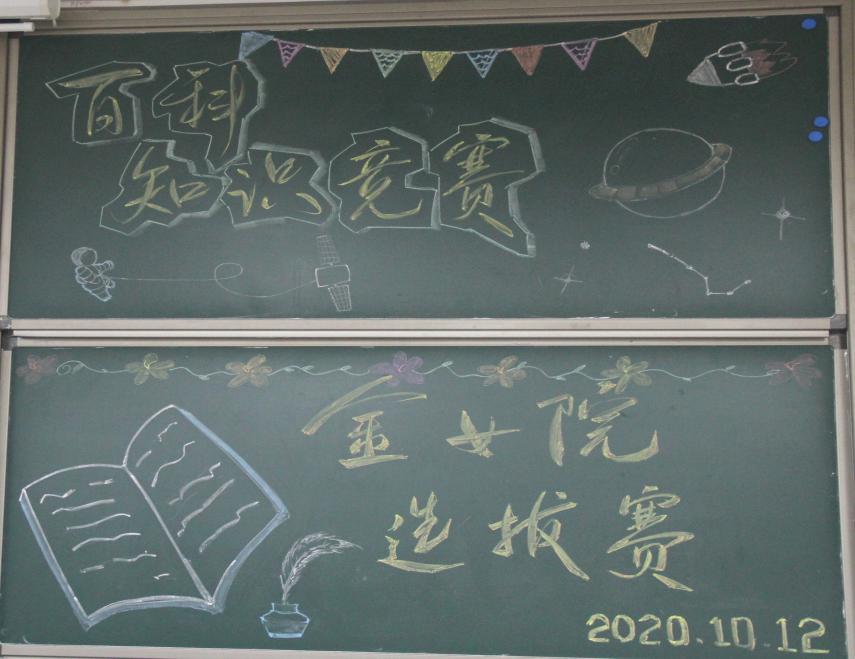 百科
知识竞赛
金女院
选拔赛
2020.10.12